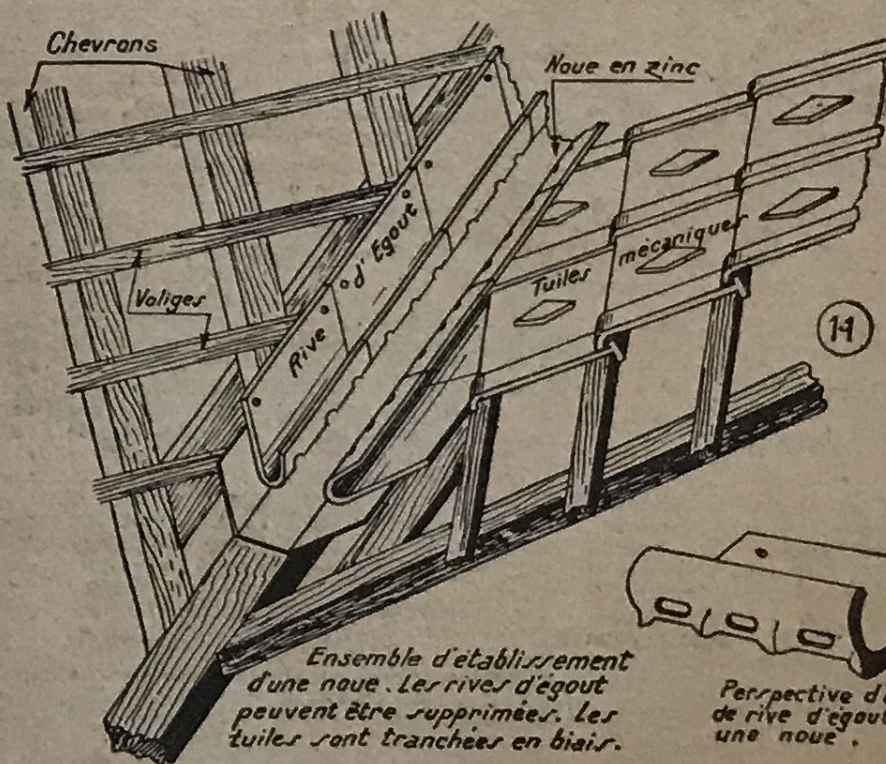 Chevrons
Noue en zinc
Voliges
Rive d'Egout
Tuiles mécaniques
11
Ensemble d'établissement
d'une noue. Les rives d'égout
peuvent être supprimées. Les
tuiles sont tranchées en biais.
Perspective
de rive d'égout
une noue.